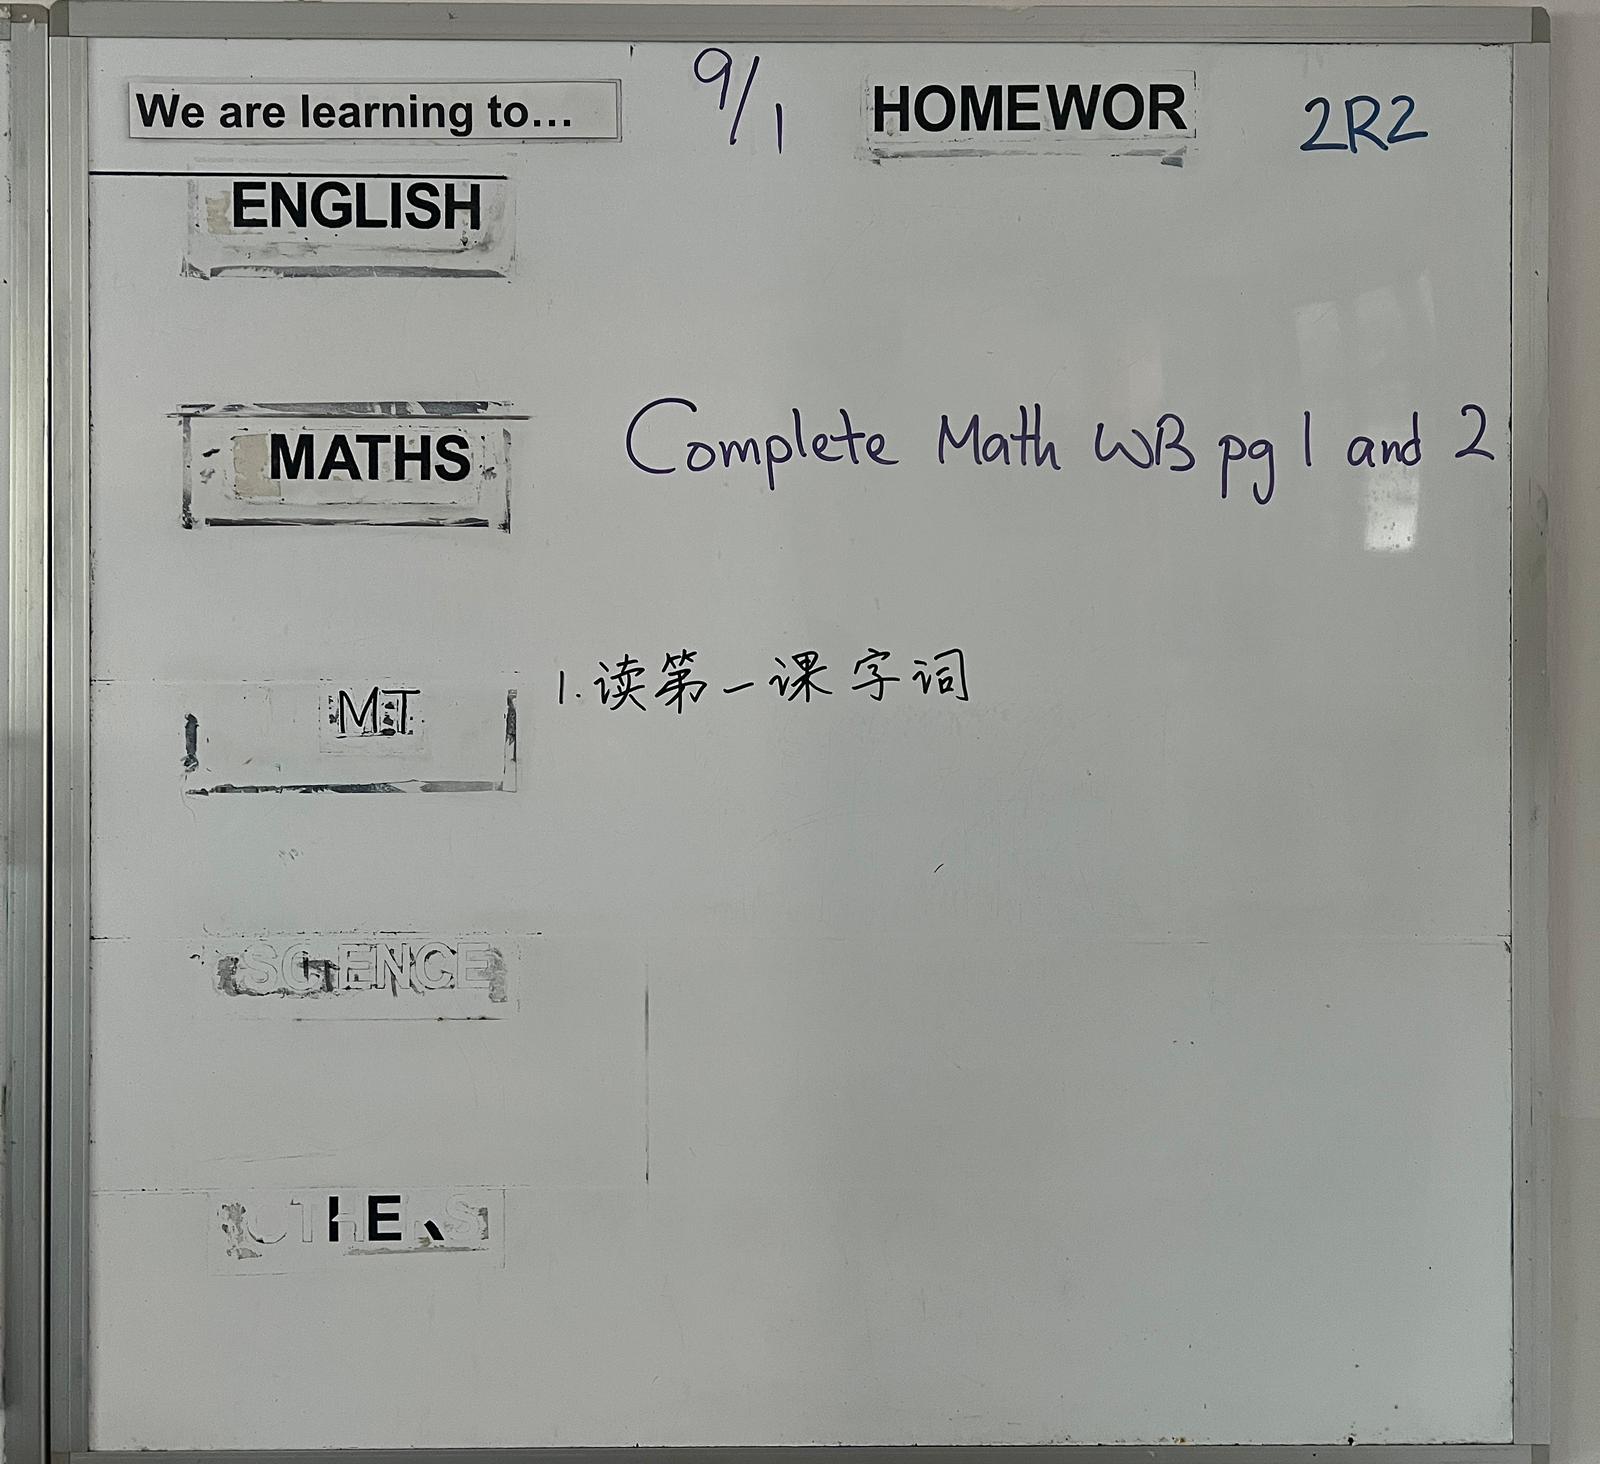 We are learning to...
9/1 HOMEWOR 2R2
ENGLISH
MATHS Complete Math WB pg 1 and 2
MT 1. 读第一课字词
SCIENCE
OTHERS